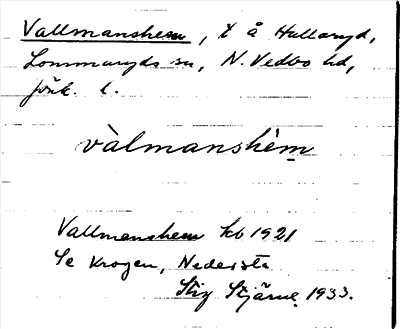 Vallmanshem, t å Hullaryd,
Lommaryds sn, N. Vedbo hd,
Jönk. l.
vàlmanshèm
Vallmanshem kb 1921
Se Krogen, Nedersta
Stig Stjärne 1933.